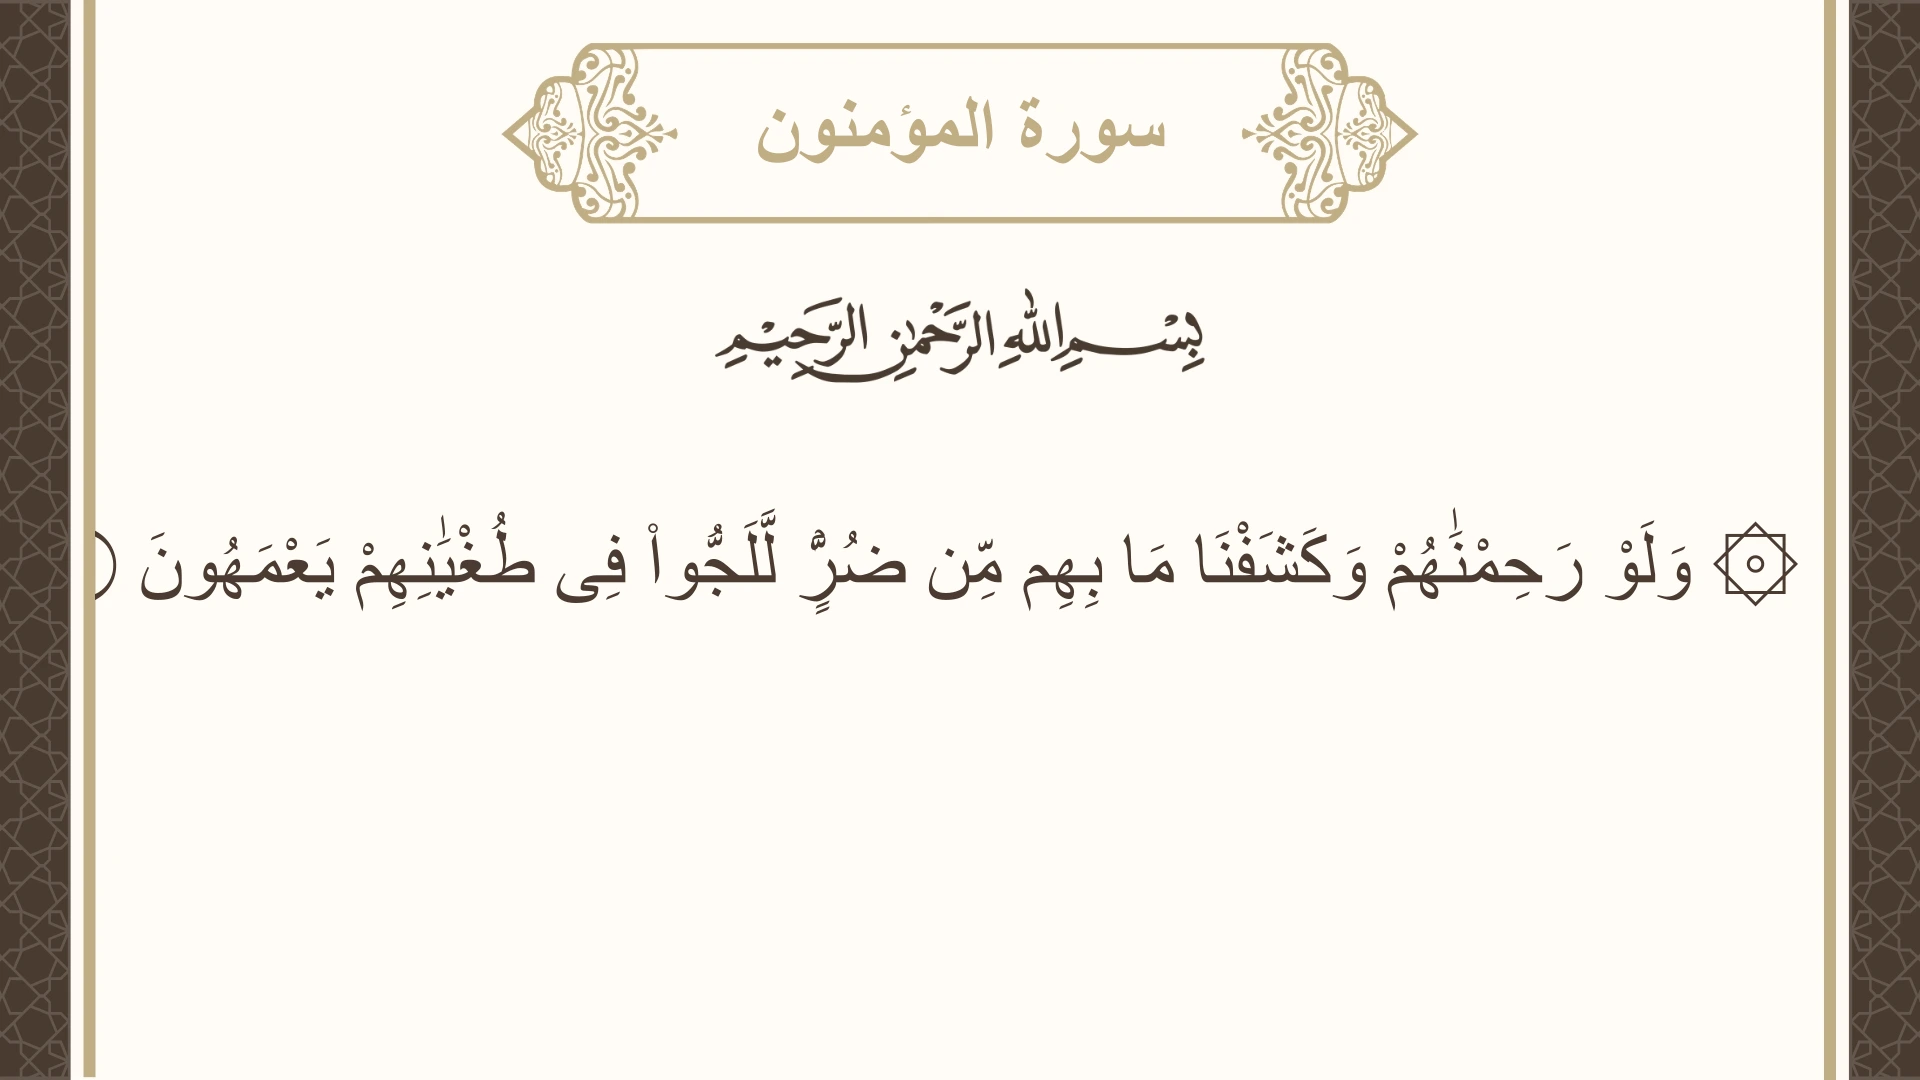 سورة المؤمنون
بِسْمِ اللهِ الرَّحْمٰنِ الرَّحِيْمِ
۞ وَلَوْ رَحِمْنَـٰهُمْ وَكَشَفْنَا مَا بِهِم مِّن ضُرٍّۢ لَّلَجُّوا۟ فِى طُغْيَـٰنِهِمْ يَعْمَهُونَ